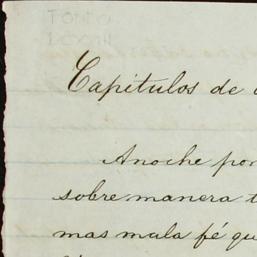 TONTO
Capitulos de
Anoche por
sobre manera t
mas mala fé qu